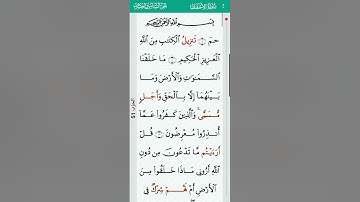 بِسْمِ ٱللَّهِ ٱلرَّحْمَٰنِ ٱلرَّحِيمِ
حمٓ ۝١ تَنزِيلُ ٱلْكِتَٰبِ مِنَ ٱللَّهِ
ٱلْعَزِيزِ ٱلْحَكِيمِ ۝٢ مَا خَلَقْنَا
ٱلسَّمَٰوَٰتِ وَٱلْأَرْضَ وَمَا
بَيْنَهُمَآ إِلَّا بِٱلْحَقِّ وَأَجَلٍ
مُّسَمًّى ۚ وَٱلَّذِينَ كَفَرُوا۟ عَمَّآ
أُنذِرُوا۟ مُعْرِضُونَ ۝٣ قُلْ
أَرَءَيْتُم مَّا تَدْعُونَ مِن دُونِ
ٱللَّهِ أَرُونِى مَاذَا خَلَقُوا۟ مِنَ
ٱلْأَرْضِ أَمْ لَهُمْ شِرْكٌ فِى